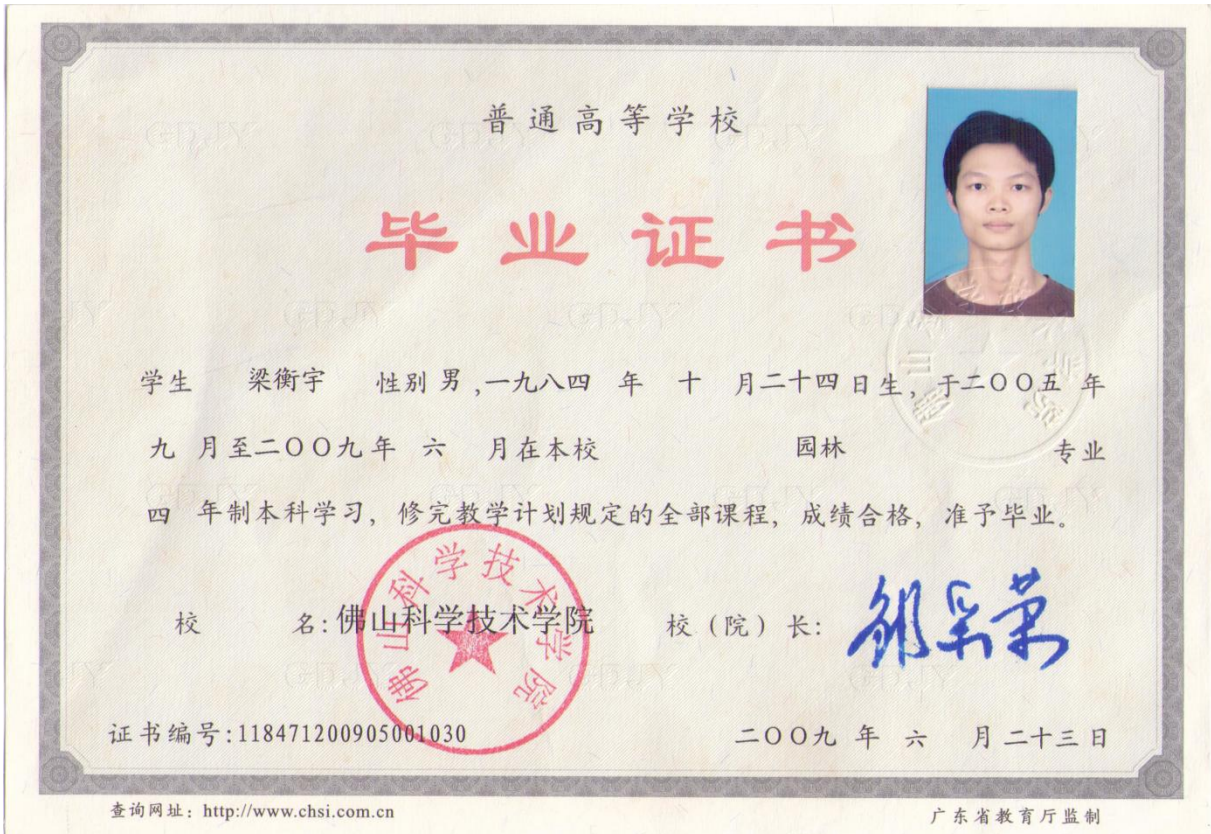 普通高等学校
毕业证书
学生 梁衡宇 性别 男,一九八四 年 十 月二十四日生,于二〇〇五 年
九 月至二〇〇九年 六 月在本校 园林 专业
四 年制本科学习,修完教学计划规定的全部课程,成绩合格,准予毕业。
校 名:佛山科学技术学院 校(院)长:
佛山科学技术学院
证书编号:118471200905001030 二〇〇九 年 六 月二十三日
查询网址:http://www.chsi.com.cn 广东省教育厅监制